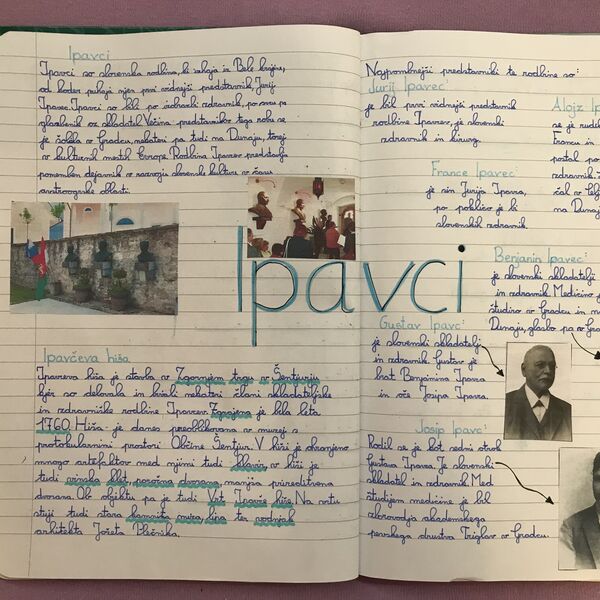 Ipavci
Ipavci so slovenska rodbina, ki izhaja iz Bele krajine,
od koder prihaja njen prvi vidnejši predstavnik, Jurij
Ipavec. Ipavci so bili po izobrazbi zdravniki, po svoje pa
glasbeniki oz. skladatelji. Večina predstavnikov tega rodu se
je šolala v Gradcu, nekateri pa tudi na Dunaju, torej
v kulturnih mestih Evrope. Rodbina Ipavcev predstavlja
pomemben dejavnik v razvoju slovenske kulture v času
avstroogrske oblasti.
Ipavci
Ipavčeva hiša
Ipavčeva hiša je stavba v Zgornjem trgu v Šentjurju
kjer so delovali in bivali nekateri člani skladateljske
in zdravniške rodbine Ipavcev. Zgrajena je bila leta
1760. Hiša je danes preoblikovana v muzej s
protokolarnimi prostori Občine Šentjur. V hiši je ohranjeno
mnogo artefaktov med njimi tudi klavir, v hiši je
tudi vinska klet, poročna dvorana, manjša prireditvena
dvorana. Ob objektu pa je tudi Vrt Ipavčeve hiše. Na vrtu
stoji tudi stara kamnita miza, lipa ter vodnjak
arhitekta Jožeta Plečnika.
Najpomembnejši predstavniki te rodbine so:
Jurij Ipavec
je bil prvi vidnejši predstavnik
rodbine Ipavcev, je slovenski
zdravnik in kirurg.
Alojz
se je rodil
Francu in
postal po
zdravnik
čal v Celj
na Dunaj
France Ipavec
je sin Jurija Ipavca,
po poklicu je bil
slovenski zdravnik.
Benjamin Ipavec:
je slovenski skladatelj
in zdravnik. Medicino je
študiral v Gradcu in na
Dunaju, glasbo pa v Gradcu
Gustav Ipavc:
je slovenski skladatelj
in zdravnik. Gustav je
brat Benjamina Ipavca
in oče Josipa Ipavca.
Josip Ipavc:
Rodil se je kot sedmi otrok
Gustava Ipavca. Je slovenski
skladatelj in zdravnik. Med
študijem medicine je bil
zborovodja akademskega
pevskega društva Triglav v Gradcu.